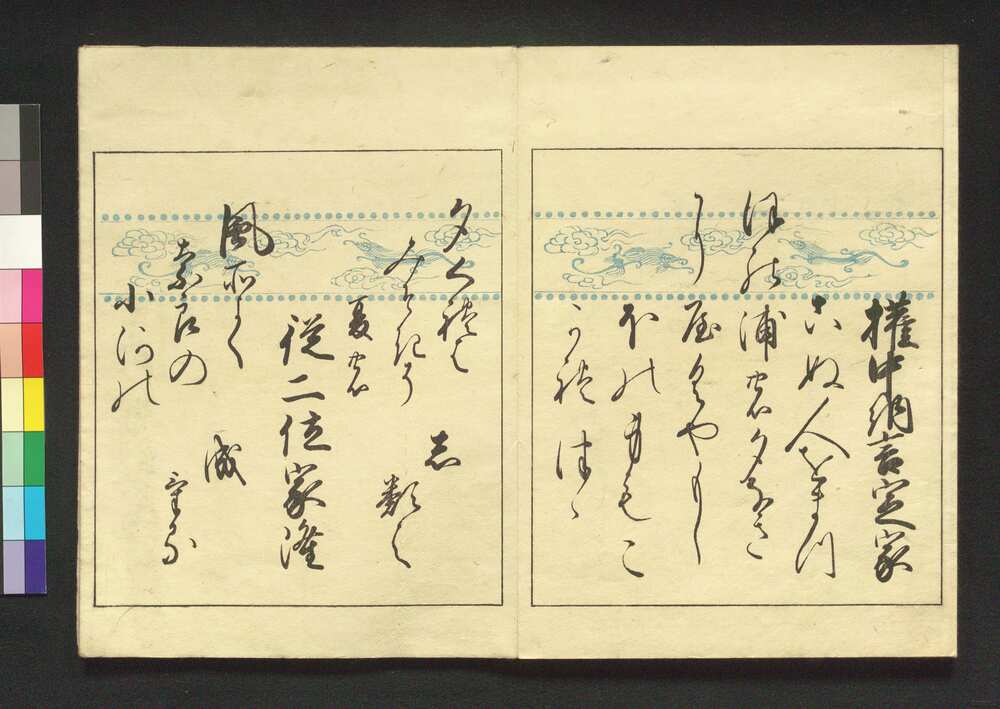 權中納言定家
こぬ人をまつ
ほの浦の夕なき
にやくやもし
ほの身もこ
かれつゝ
従二位家隆
風そよく
奈良の
小河の
夕くれは
みそきそ
夏の
志
類し
成
ける